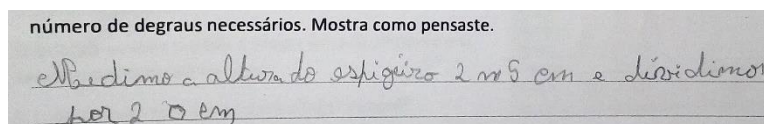 número de degraus necessários. Mostra como pensaste.
Medimo a altura do espigueiro 2 m 5 cm e dividimos
por 20 cm